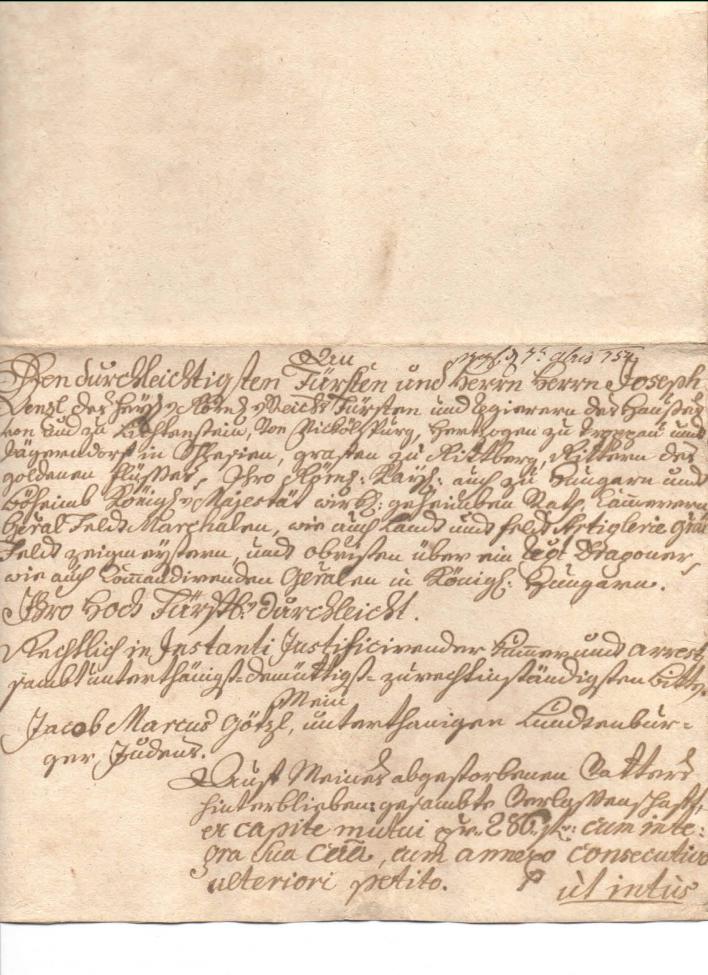 An
Den durchleichtigsten Fürsten und Herrn Herrn Joseph
Wenzl des Heyl: Röm: Reichs Fürsten und Regierern des Haußes
von und zu Lichtenstein, von Nicolspurg, Hertzogen zu Troppau und
Jägerndorf in Schlesien, grafen zu Rittberg, Rittern des
goldenen Flüsses, Ihro Röm: Kayß: auch zu Hungarn und
Böheimb Königl: Majestät würkl: geheimben Rath, Cammerern
Gēral Feldt Marchalen, wie auch Land und Feld Artiglerie Gēral
Feldt zeigmeystern, und obristen über ein Regt Dragoner,
wie auch Commandirenden Geralen in Königl: Hungarn.
Ihro Hoch Fürstl: durchleicht.
Rechtlich in Instanti Justificirender Kummer und Arrest
sambt unterthänigst-demüttigst-zurecht inständigsten bitten
Mein
Jacob Marcus Götzl, unterthanigen Lundtenbur-
ger Judens.
Auf Meines abgestorbenen Vatters
hinterblieben: gesambte Verlassenschafft,
ex capite mutui pr. 286 fl: cum inte-
gra sua caã, cum annexo consecutivo
ulteriori petito. ut intus